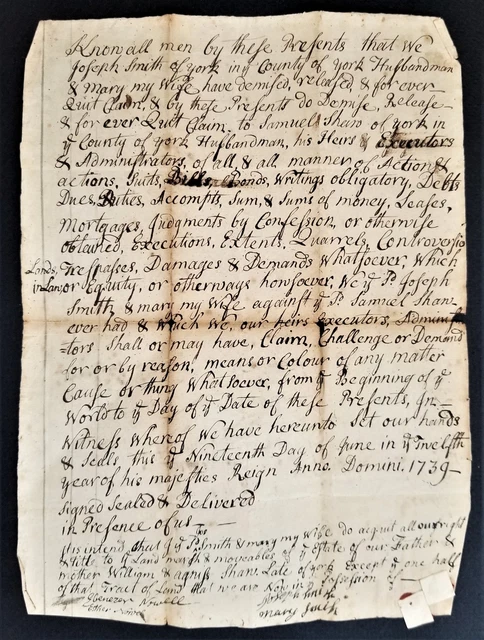 Know all men by these Presents that we
Joseph Smith of york in yͤ County of york Husbandman
& mary my Wife have demised, released, & for ever
Quit Claim, & by these Presents do Demise, Release
& for ever Quit Claim to Samuel Shaw of york in
yͤ County of york Husbandman, his Heirs & Executors
& Administrators, of all & all manner of Action &
actions, Suits, Bills, Bonds, Writings obligatory, Debts
Dues, Duties, Accompts, Sum, & Sums of money, Leases,
Mortgages, Judgments by Confession, or otherwise
obtained, Executions, Extents, Quarrels, Controversio
Lands, Trespasses, Damages & Demands Whatsoever, Which
in Law, or Equity, or otherways howsoever, We yͤ Sͩ Joseph
Smith & mary my Wife against yͤ Sͩ Samuel Shaw
ever had & Which we, our heirs Executors, Adminis
tors Shall or may have, Claim, Challenge or Demand
for or by reason, means or Colour of any matter
Cause or thing Whatsoever, from yͤ Beginning of yͤ
World to yͤ Day of yͤ Date of these Presents, In
Witness Whereof We have hereunto Set our hands
& Seals, this yͤ Nineteenth Day of June in yͤ Twelfth
year of his majesties Reign Anno Domini. 1739
Signed Sealed & Delivered
in Presence of us
intend that yͤ Sͩ Smith & mary my Wife do acquit all our right
& title to yͤ Land marsh & moveables of yͤ Estate of our Father &
mother William & agniss Shaw Late of york Except yͤ one half
of that Tract of Land that we are Now in Possession of
Ebenezer Nowell
Joseph Smith
Mary Smith